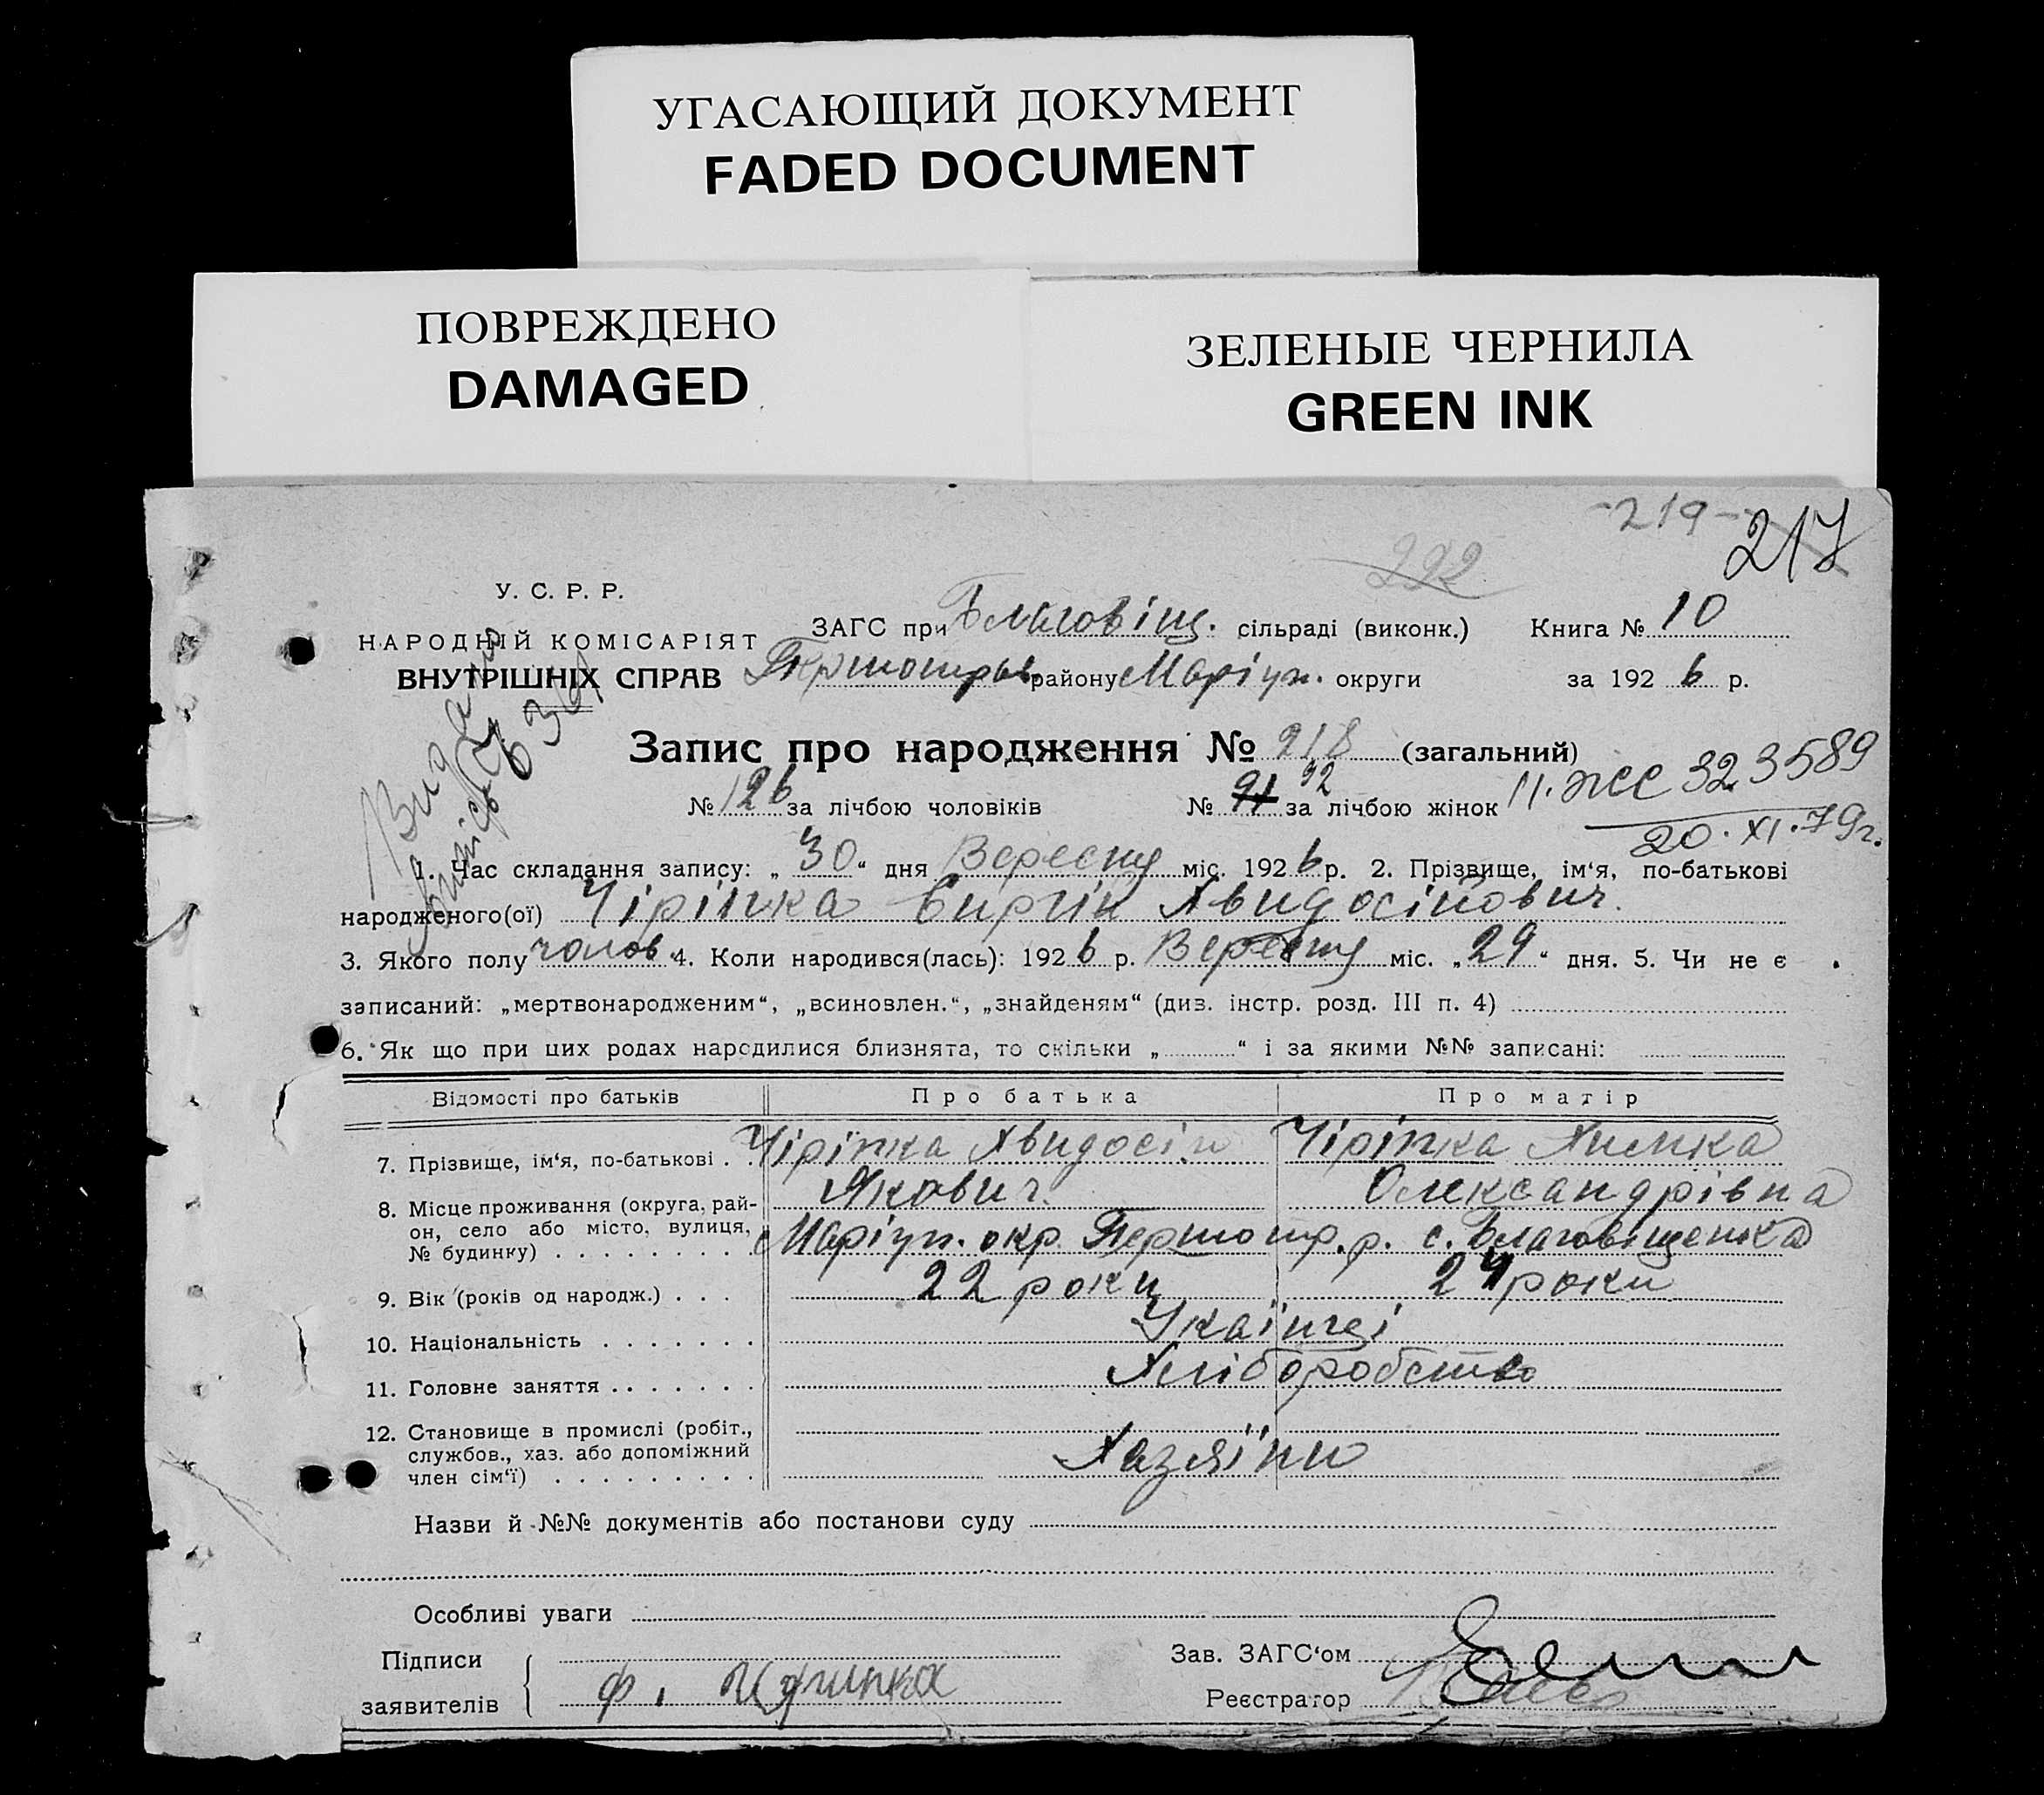 УГАСАЮЩИЙ ДОКУМЕНТ
FADED DOCUMENT
ПОВРЕЖДЕНО
DAMAGED
ЗЕЛЕНЫЕ ЧЕРНИЛА
GREEN INK
-219-
217
292
У. С. Р. Р.
НАРОДНІЙ КОМІСАРІЯТ
ВНУТРІШНІХ СПРАВ
ЗАГС при Благовіщ. сільраді (виконк.) Книга № 10
району Маріуп. округи за 1926 р.
Запис про народження № 218 (загальний)
№ 126 за лічбою чоловіків № 91 92 за лічбою жінок
323589
20.XI.79г.
1. Час складання запису: „30“ дня Вересня міс. 1926 р. 2. Прізвище, ім‘я, по-батькові
народженого(ої) Чіріпка Хвидосійович.
3. Якого полу чолов. 4. Коли народився(лась): 1926 р. Вересня міс. „29“ дня. 5. Чи не є
записаний: „мертвонародженим“, „всиновлен.“, „знайденям“ (див. інстр. розд. III п. 4)
6. Як що при цих родах народилися близнята, то скільки „ “ і за якими №№ записані:
Відомості про батьків Про батька Про матір
7. Прізвище, ім‘я, по-батькові . . Чіріпка Хвидосій Чіріпка Химка
Якович. Олександрівна
8. Місце проживання (округа, рай-
он, село або місто, вулиця,
№ будинку) . . . . . . . . Маріуп. окр. Першотр. р. с. Благовіщенка
9. Вік (років од народж.) . . . 22 роки 24 роки
10. Національність . . . . . . . Украінці
11. Головне заняття . . . . . . . Хліборобство
12. Становище в промислі (робіт.,
службов., хаз. або допоміжний
член сім‘ї) . . . . . . . . . Хазяїни
Назви й №№ документів або постанови суду
Особливі уваги
Підписи
заявителів
Ф.
Зав. ЗАГС‘ом
Реєстратор